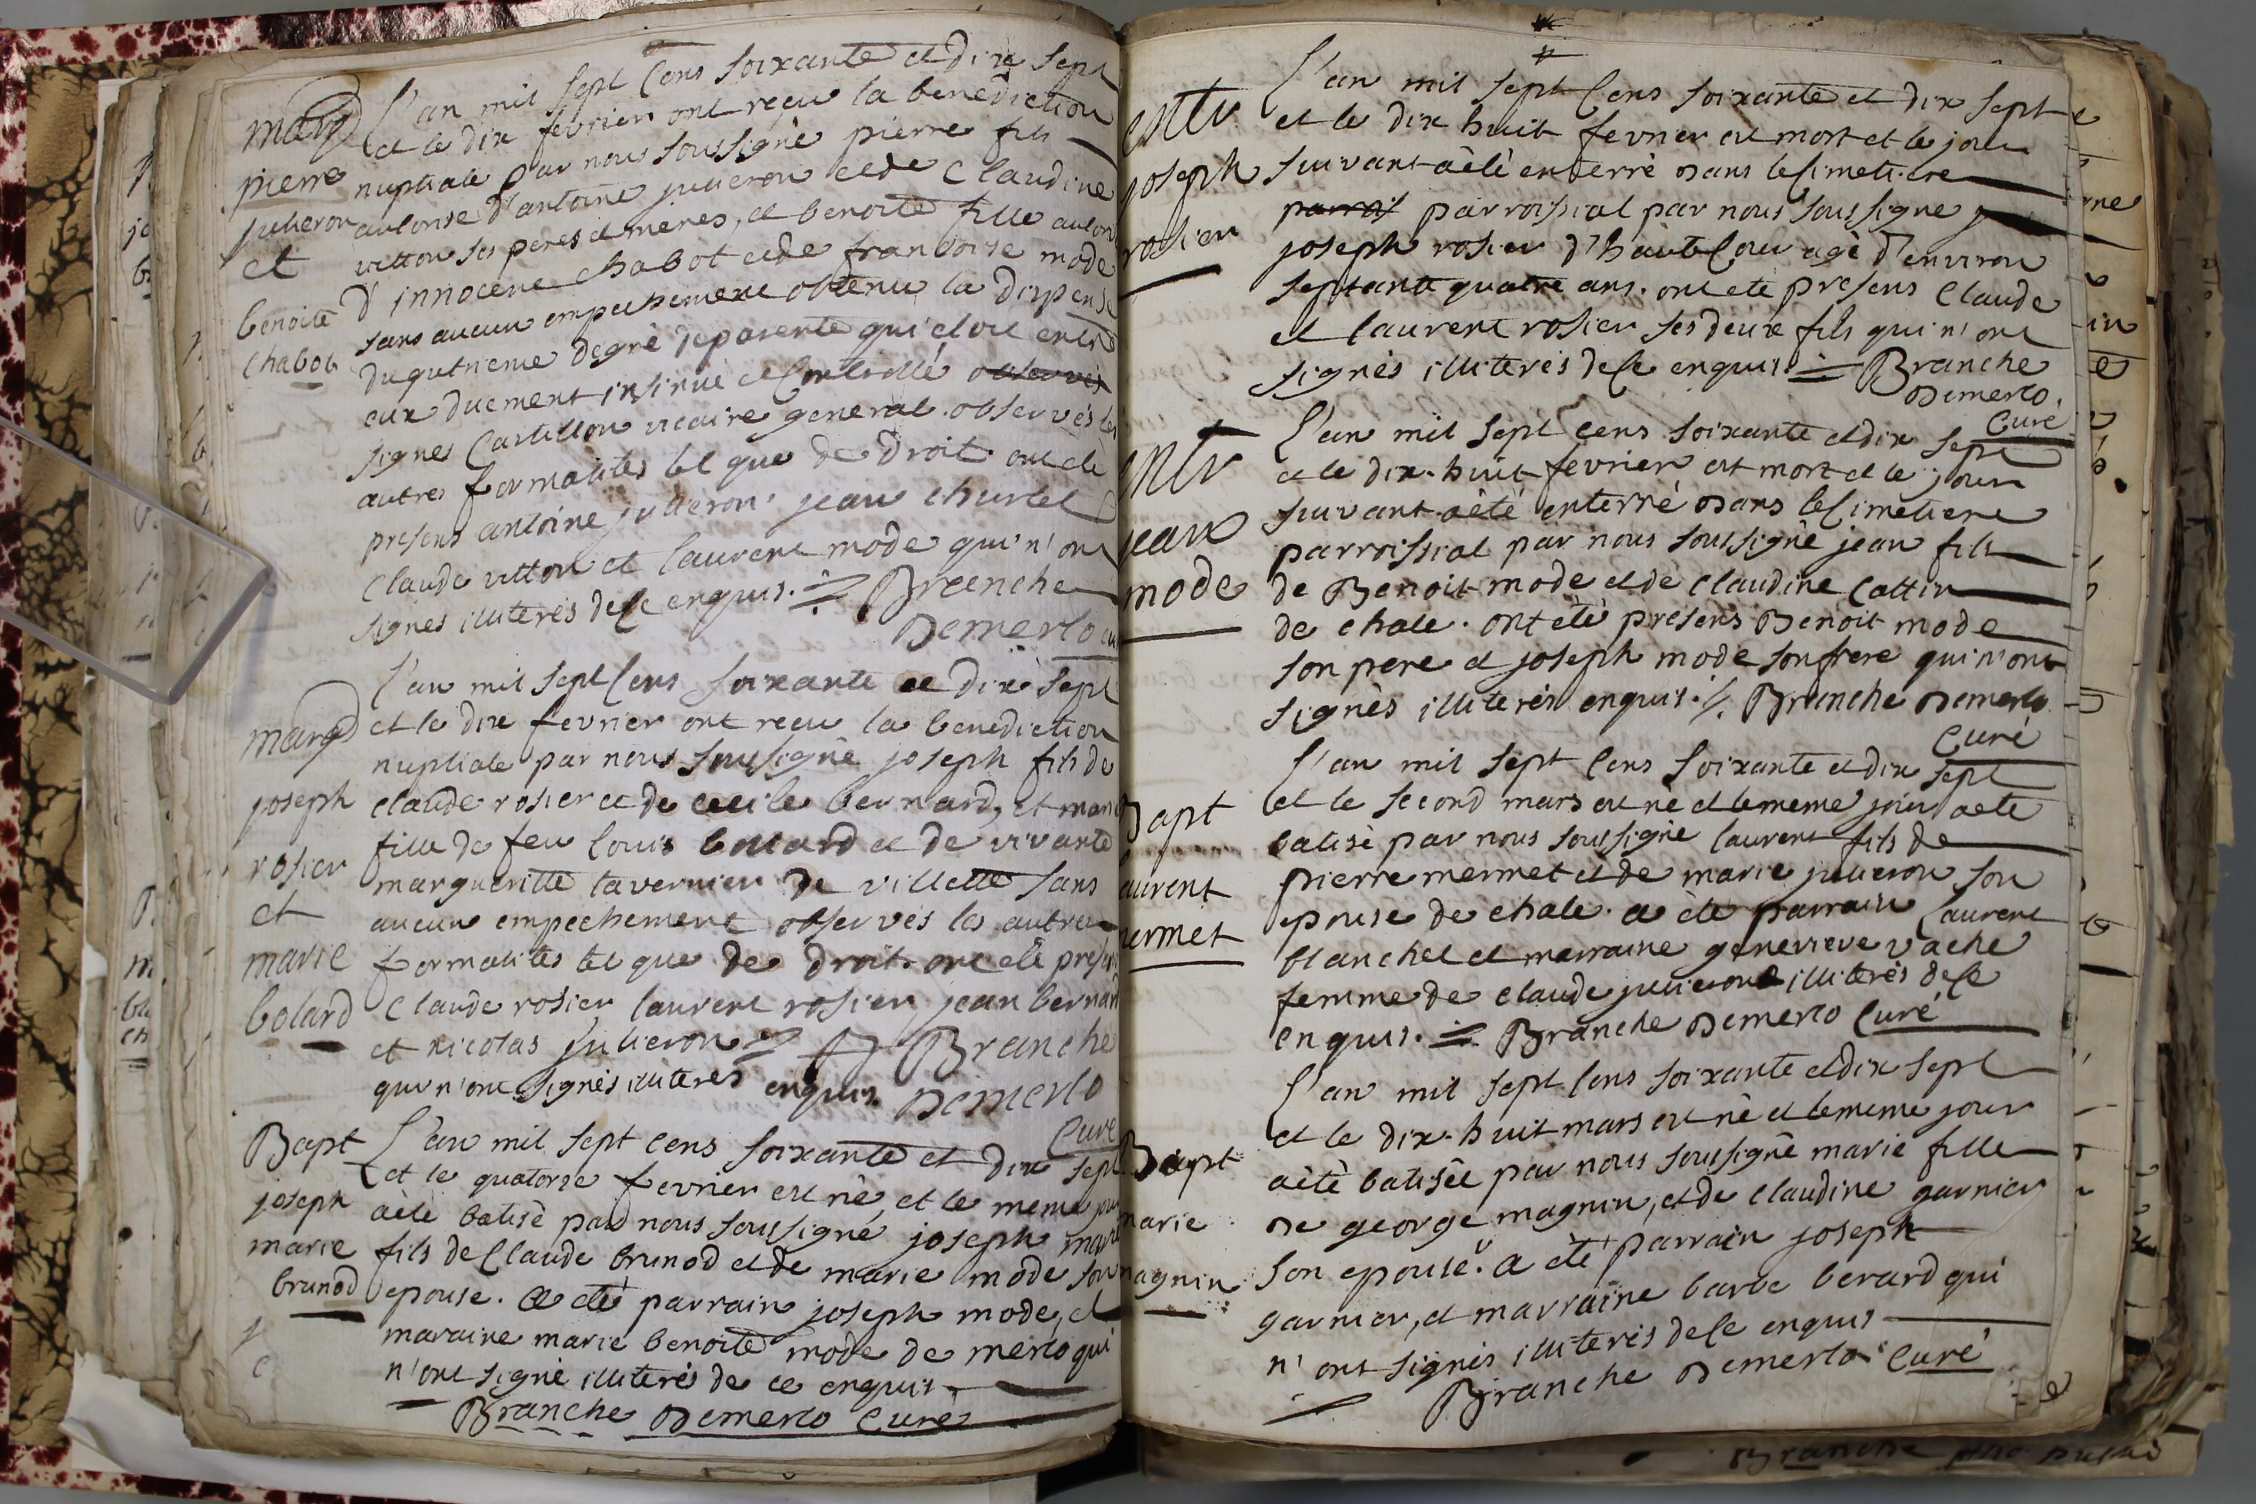 mari
pierre
julieron
et
benoite
chabot
L'an mil sept Cens soixante et dix sept
et le dix fevrier ont reçu la benediction
nuptiale par nous soussigné pierre fils
autorisé d'antoine julieron et de Claudine
vitton ses peres et meres, et benoite fille autori
d'innocene chabot et de francoise mode
sans aucun empechement obtenu la dispense
du qutrieme degré de parenté qui etoit entre
eux duement insinué et Controllé observés
signes Castillon vicaire general. observés les
autres formalités tel que de droit ont eté
presens antoine julieron jean churlet
Claude vitton et laurent mode qui n'ont
signés illiterés de Ce enquis. Branche
Demerlo cu
mari
joseph
rosier
et
marie
bolard
L'an mil sept Cens soixante et dix sept
et le dix fevrier ont reçu la benediction
nuptiale par nous soussigné joseph fils de
claude rosier et de cecile bernard, et marie
fille de feu louis bollard et de vivante
margueritte tavernier de villette sans
aucun empechement observés les autres
formalités tel que de droit. ont eté prese
Claude rosier laurent rosier jean bernard
et nicolas julieron Branche
qui n'ont signés illiterés enquis Demerlo
Curé
Bapt
joseph
marie
brunod
L'an mil sept cens soixante et dix sept
et le quatorze fevrier est né, et le meme jour
aété batisé par nous soussigné joseph marie
fils de Claude brunod et de marie mode son
epouse. a eté parrain joseph mode, et
maraine marie benoite mode de merlo qui
n'ont signé illiterés de ce enquis
Branche Demerlo Curé
entr
joseph
rosier
L'an mil sept Cens soixante et dix sept
et le dix huit fevrier est mort et le jour
suivant aété enterré dans le Cimetiere
parrois parroissial par nous soussigné
joseph rosier d'hauteCour agé d'environ
septante quatre ans. ont eté presens Claude
et laurent rosier ses deux fils qui n'ont
signés illiterés de Ce enquis. Branche
Demerlo.
Curé
entr
jean
mode
L'an mil sept cens soixante et dix sept
et le dix-huit fevrier est mort et le jour
suivant aété enterré dans le Cimetiere
parroissial par nous soussigné jean fils
de Benoit mode et de Claudine Cattin
de chale. ont eté presens Benoit mode
son pere et joseph mode son frere qui n'ont
signés illiterés enquis. Branche Demerlo
Curé
Bapt
laurent
mermet
L'an mil sept Cens soixante et dix sept
et le second mars est né et le meme jour aeté
batisé par nous soussigné laurent fils de
pierre mermet et de marie julieron son
epouse de chale. a eté parrain laurent
blanchet et marraine genevieve vache
femme de claude julieron illiterés de Ce
enquis. Branche Demerlo Curé
Bapt
marie
magnin
L'an mil sept Cens soixante et dix sept
et le dix-huit mars est né et le meme jour
aété batisée par nous soussigné marie fille
de george magnin, et de claudine garnier
son epouse. a eté parrain joseph
garnier, et marraine barbe berard qui
n'ont signés illiterés de Ce enquis
Branche Demerlo Curé